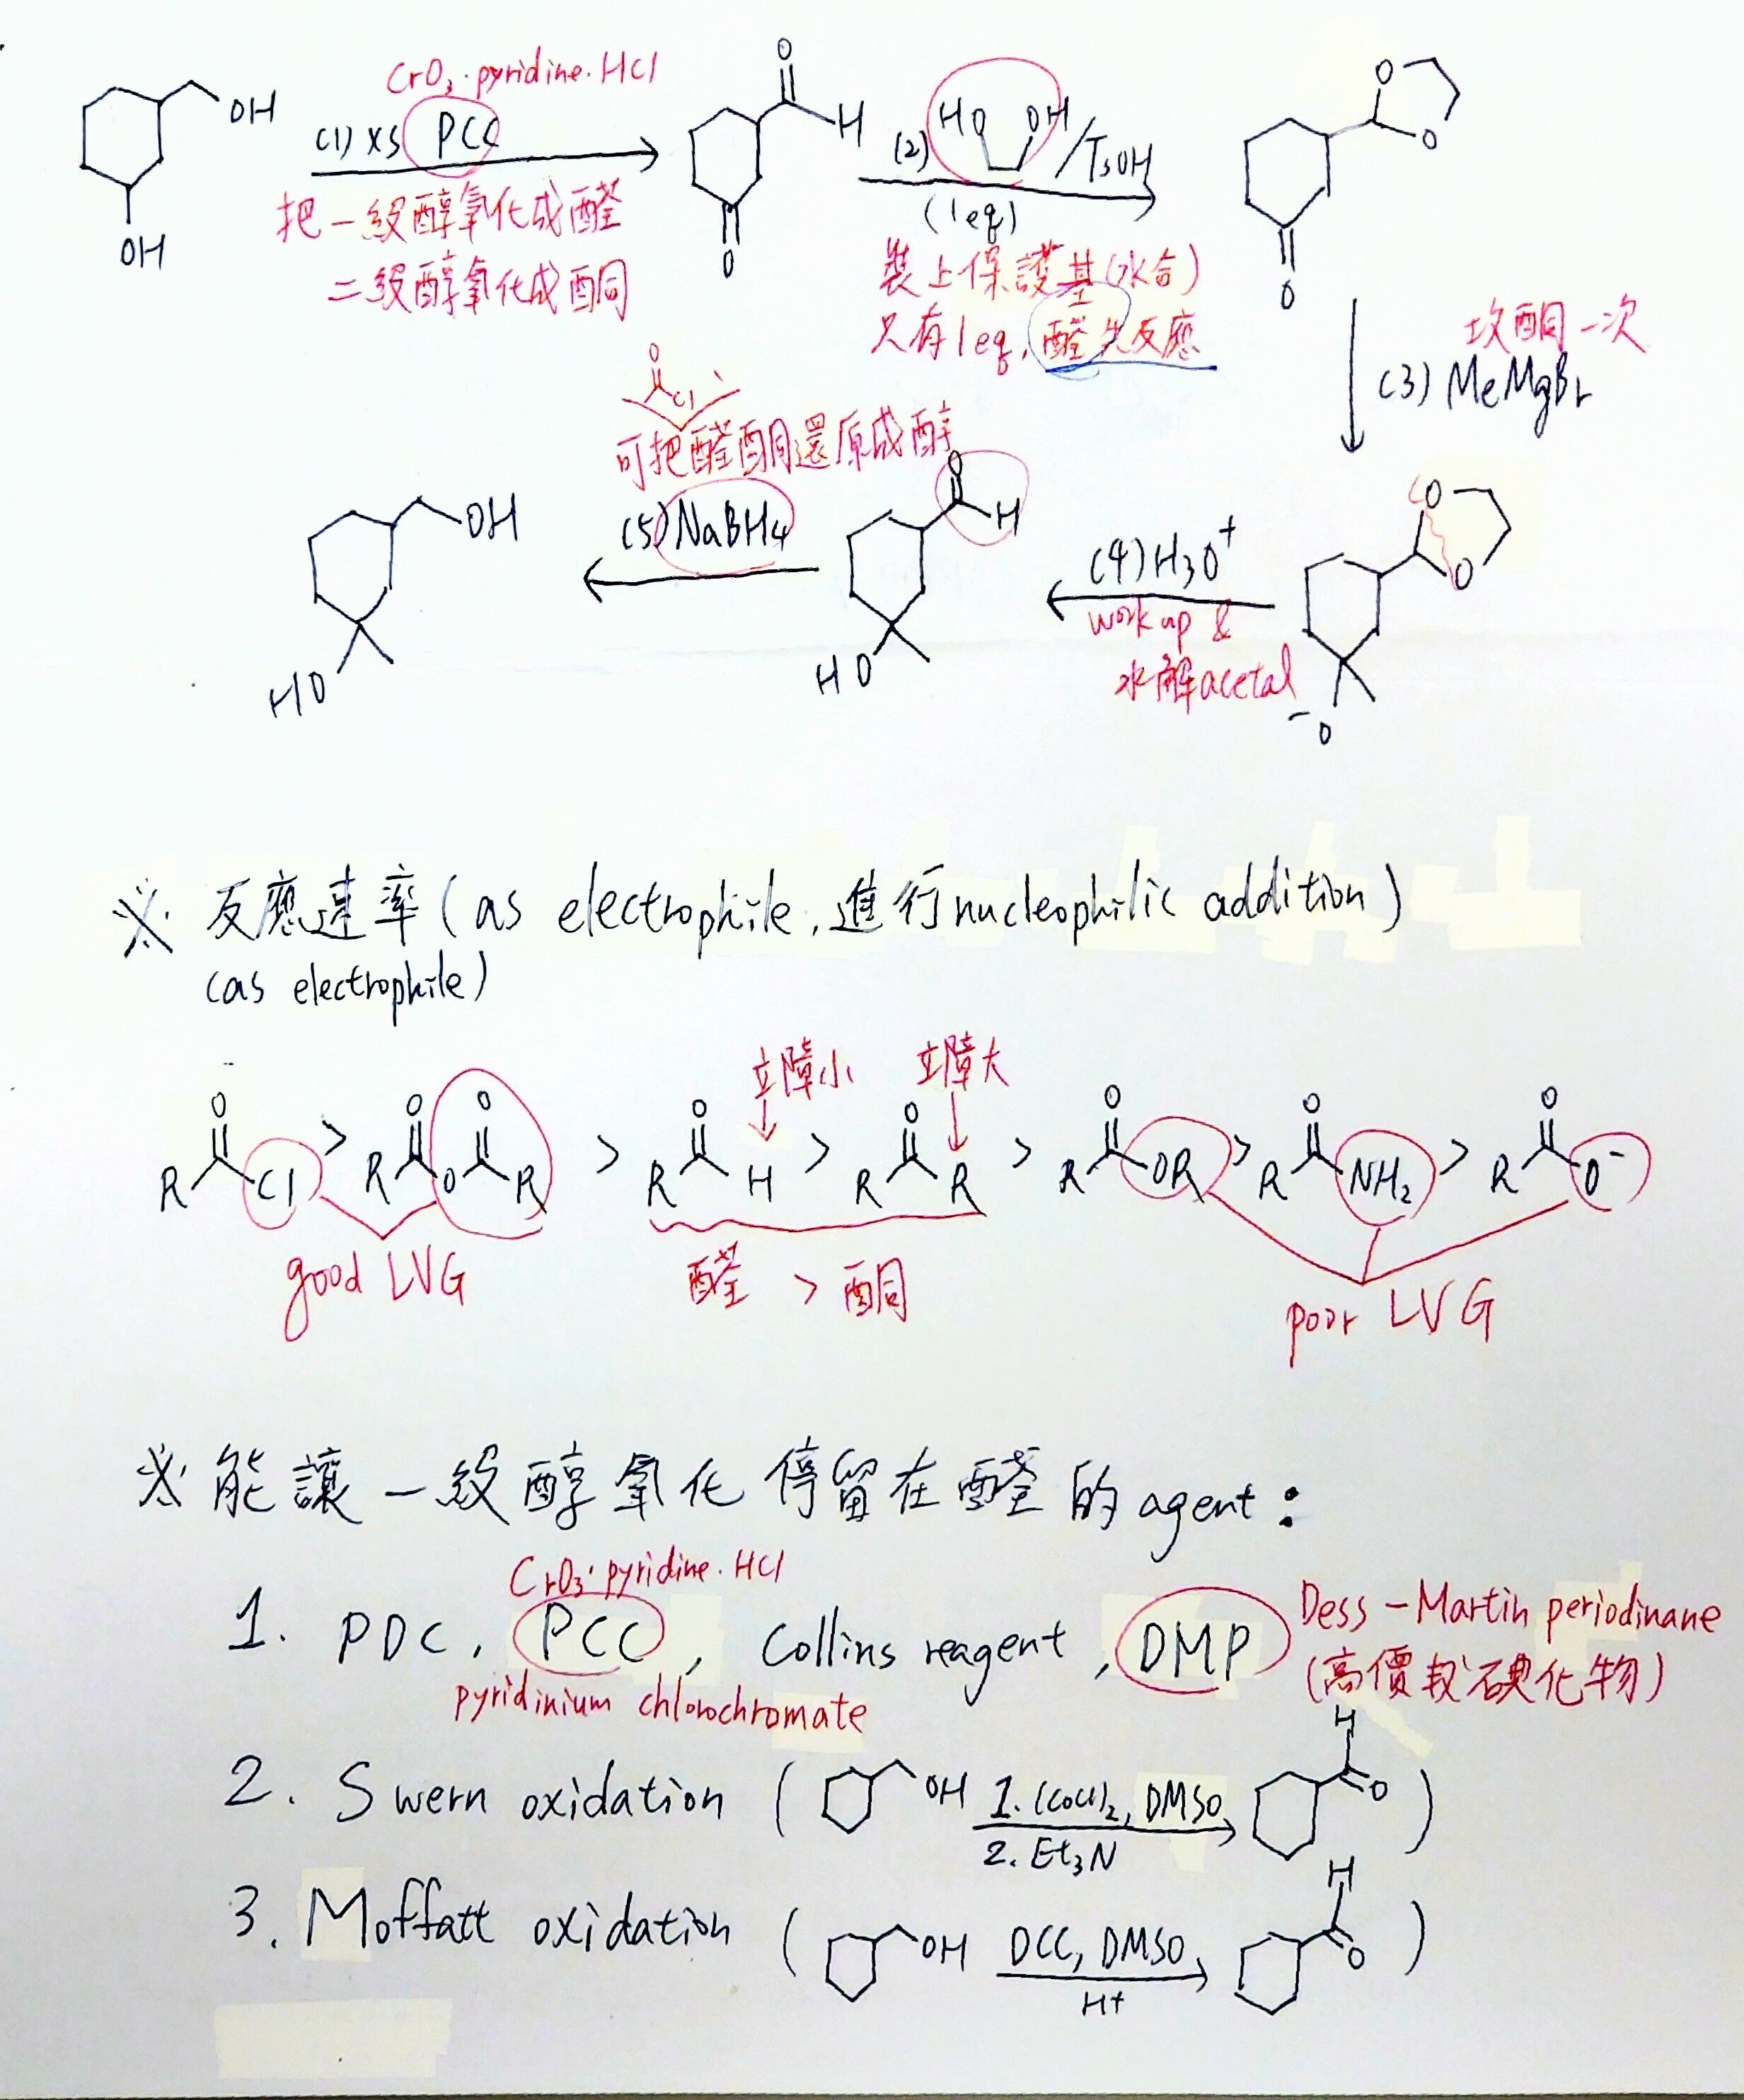 CrO3·pyridine·HCl
(1) xs PCC
OH
OH
把一級醇氧化成醛
二級醇氧化成酮
O
H
O
(2) HO OH /TsOH
(1eq)
裝上保護基(水合)
只有1eq, 醛先反應
O
O
O
攻酮一次
(3) MeMgBr
O
O
-O
(4) H3O+
work up &
水解acetal
O
H
HO
O
Cl
可把醛酮還原成醇
(5) NaBH4
OH
HO
※ 反應速率(as electrophile, 進行nucleophilic addition)
(as electrophile)
立障小 立障大
O O O O O O O O
R Cl > R O R > R H > R R > R OR > R NH2 > R O-
good LVG 醛 > 酮 poor LVG
※ 能讓一級醇氧化停留在醛的agent:
CrO3·pyridine·HCl
1. PDC, PCC, Collins reagent, DMP Dess-Martin periodinane
pyridinium chlorochromate (高價數碘化物)
2. Swern oxidation ( OH 1. (COCl)2, DMSO H O )
2. Et3N
3. Moffatt oxidation ( OH DCC, DMSO H O )
H+